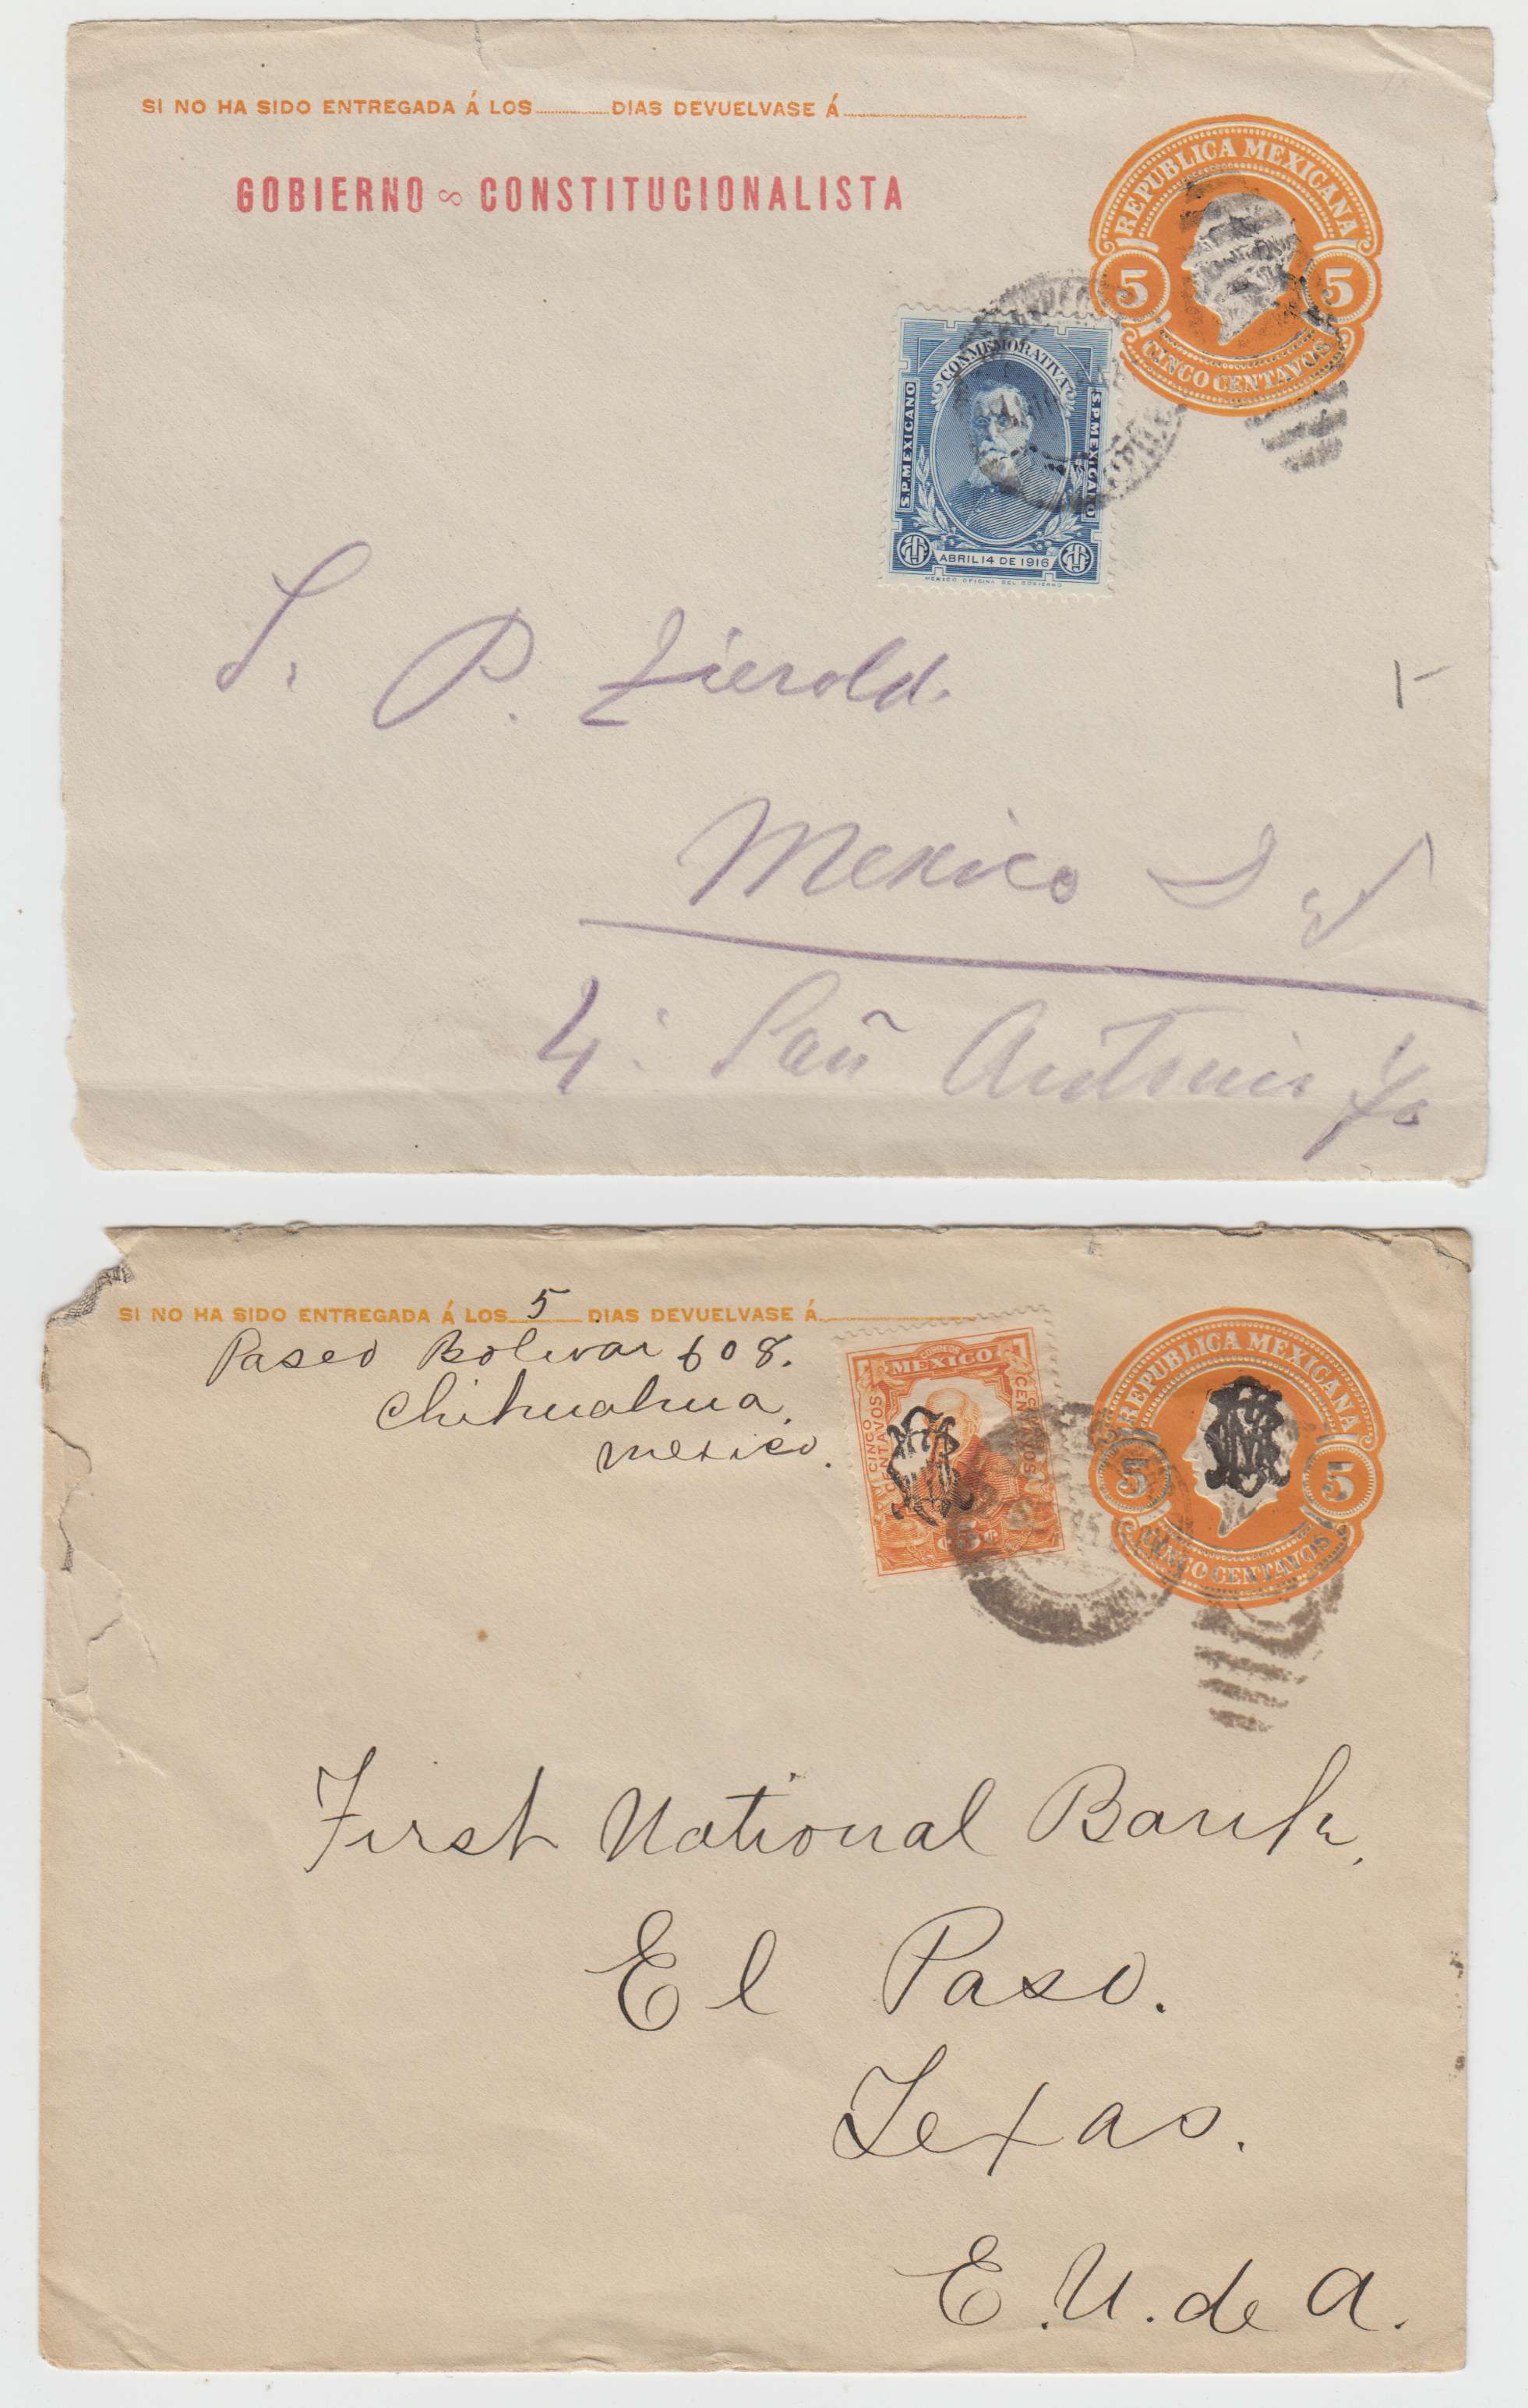 SI NO HA SIDO ENTREGADA Á LOS DIAS DEVUELVASE Á
GOBIERNO ∞ CONSTITUCIONALISTA
REPUBLICA MEXICANA
5 5
CINCO CENTAVOS
CONMEMORATIVA
S.P. MEXICANO
S.P. MEXICANO
ABRIL 14 DE 1916
MEXICO OFICINA DEL GOBIERNO
P. Zierold.
Mexico
4: Sañ Antonio
SI NO HA SIDO ENTREGADA Á LOS 5 DIAS DEVUELVASE Á
Paseo Bolivar 608.
Chihuahua,
Mexico.
MEXICO
CINCO CENTAVOS
CENTAVOS
REPUBLICA MEXICANA
5 5
CINCO CENTAVOS
First National Bank,
El Paso.
Texas.
E.U. de A.